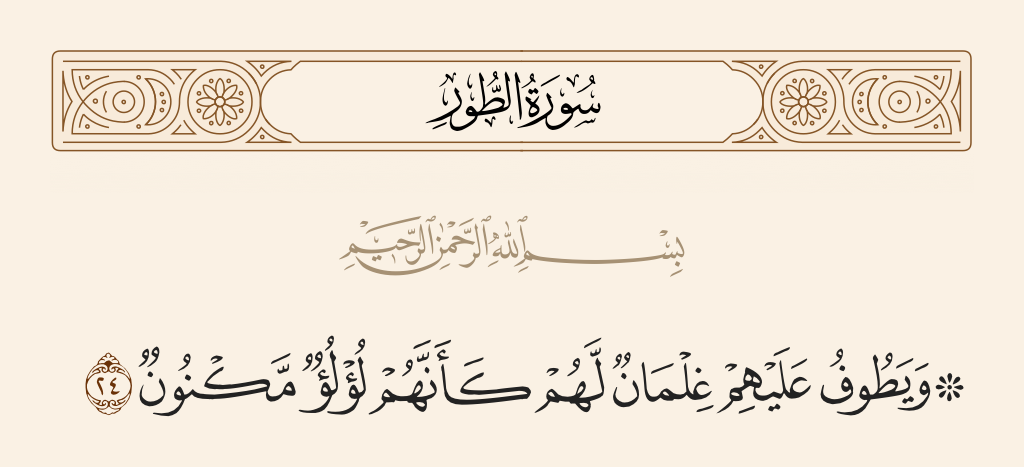 سُورَةُ الطُّورِ
بِسْمِ ٱللَّهِ ٱلرَّحْمَٰنِ ٱلرَّحِيمِ
۞ وَيَطُوفُ عَلَيْهِمْ غِلْمَانٌ لَّهُمْ كَأَنَّهُمْ لُؤْلُؤٌ مَّكْنُونٌ ٢٤